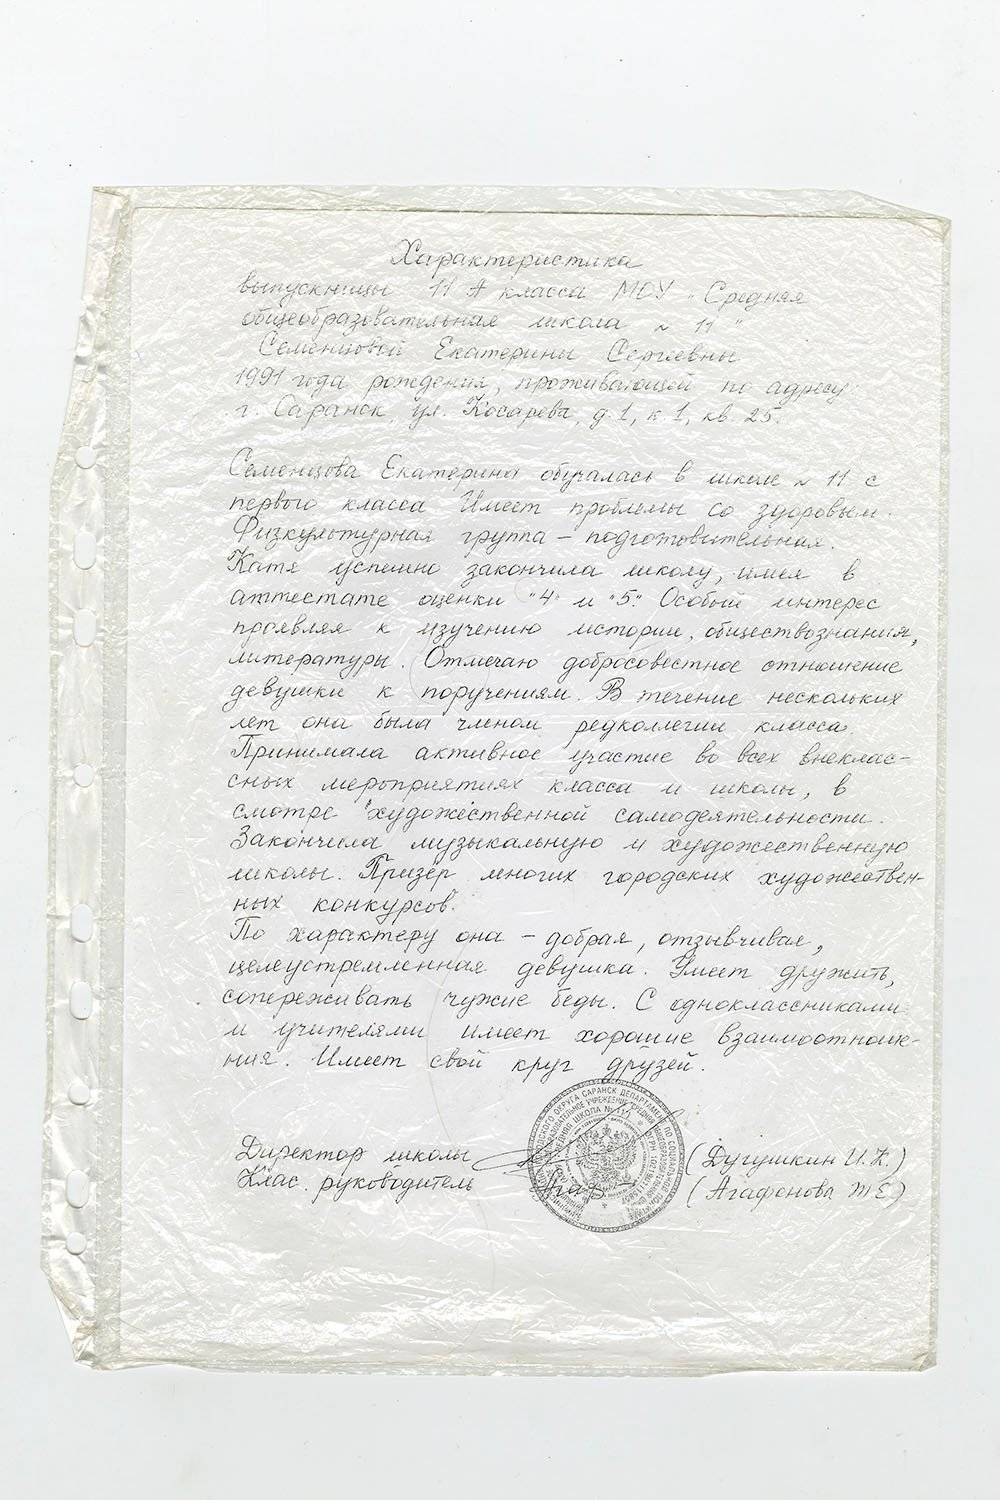 Характеристика
выпускницы 11 А класса МОУ „Средняя
общеобразовательная школа № 11"
Семенцовой Екатерины Сергеевны
1991 года рождения, проживающей по адресу:
г. Саранск, ул. Косарева, д. 1, к. 1, кв. 25.
Семенцова Екатерина обучалась в школе № 11 с
первого класса. Имеет проблемы со здоровьем.
Физкультурная группа – подготовительная.
Катя успешно закончила школу, имея в
аттестате оценки "4" и "5". Особый интерес
проявляя к изучению истории, обществознания,
литературы. Отмечаю добросовестное отношение
девушки к поручениям. В течение нескольких
лет она была членом редколлегии класса.
Принимала активное участие во всех внеклас-
сных мероприятиях класса и школы, в
смотре художественной самодеятельности.
Закончила музыкальную и художественную
школы. Призёр многих городских художествен-
ных конкурсов.
По характеру она – добрая, отзывчивая,
целеустремленная девушка. Умеет дружить,
сопереживать чужие беды. С одноклассниками
и учителями имеет хорошие взаимоотноше-
ния. Имеет свой круг друзей.
Директор школы (Дугушкин И.К.)
Клас. руководитель (Агафонова Т.Е)